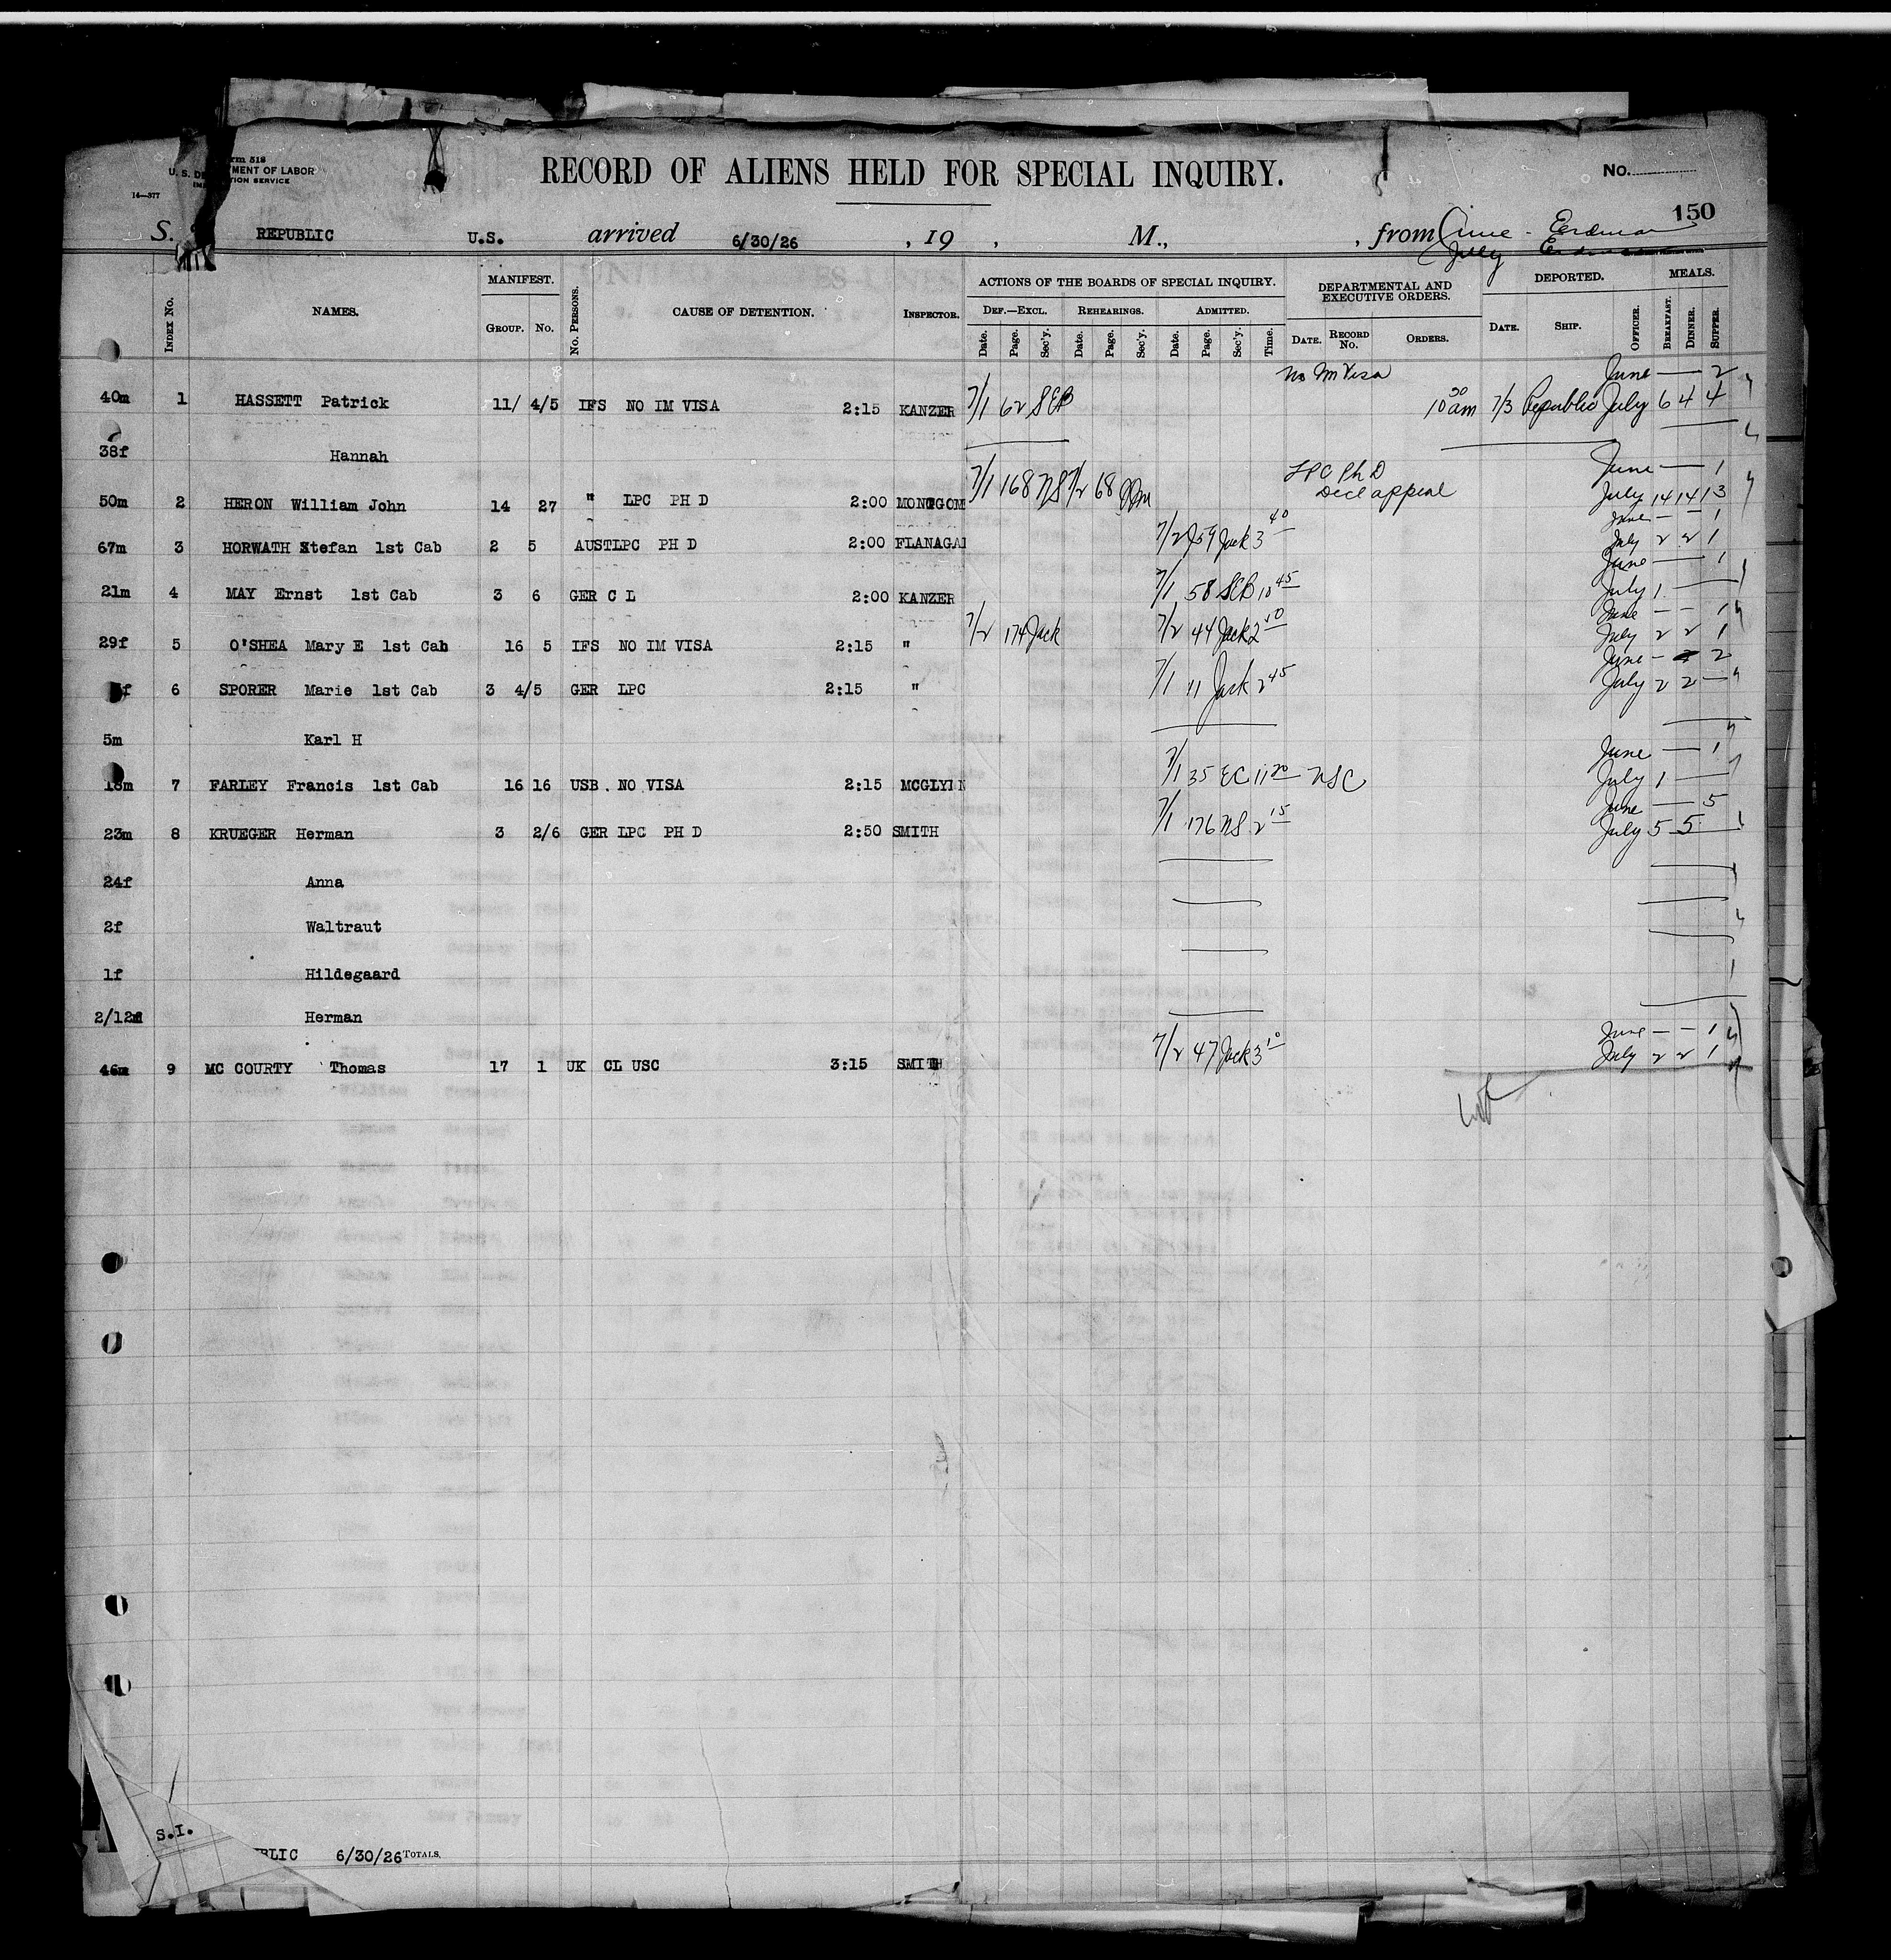 RECORD OF ALIENS HELD FOR SPECIAL INQUIRY.
No.
U. S. DEPARTMENT OF LABOR
14—377
150
S. REPUBLIC U.S. arrived 6/30/26 , 19 , M., , from June - Erdman
July Erdman
INDEX No. NAMES. MANIFEST. GROUP. No. No. PERSONS. CAUSE OF DETENTION. INSPECTOR. ACTIONS OF THE BOARDS OF SPECIAL INQUIRY. DEF.—EXCL. Date. Page. Sec'y. REHEARINGS. Date. Page. Sec'y. ADMITTED. Date. Page. Sec'y. Time. DEPARTMENTAL AND EXECUTIVE ORDERS. DATE. RECORD No. ORDERS. DEPORTED. DATE. SHIP. OFFICER. MEALS. BREAKFAST. DINNER. SUPPER.
No Im Visa June — 2
40m 1 HASSETT Patrick 11/ 4/5 IFS NO IM VISA 2:15 KANZER 7/1 62 SEB 10 30 am 7/3 Republic July 6 4 4
38f Hannah
LPC Ph D June — 1
50m 2 HERON William John 14 27 " LPC PH D 2:00 MONTGOM 7/1 168 NS 7/2 68 Decl appeal July 14 14 13
June — — 1
67m 3 HORWATH Stefan 1st Cab 2 5 AUST LPC PH D 2:00 FLANAGAN 7/2 59 Jack 3 40 July 2 2 1
June — 1
21m 4 MAY Ernst 1st Cab 3 6 GER C L 2:00 KANZER 7/1 58 SEB 10 45 July 1 —
June — — 1
29f 5 O'SHEA Mary E 1st Cab 16 5 IFS NO IM VISA 2:15 " 7/2 174 Jack 7/2 44 Jack 2 40 July 2 2 1
June — 2
6 SPORER Marie 1st Cab 3 4/5 GER LPC 2:15 " 7/1 11 Jack 2 45 July 2 2 —
5m Karl H
June — 1
18m 7 FARLEY Francis 1st Cab 16 16 USB. NO VISA 2:15 MCGLYNN 7/1 35 EC 11 20 NSC July 1 —
June — 5
23m 8 KRUEGER Herman 3 2/6 GER LPC PH D 2:50 SMITH 7/1 176 NS 2 15 July 5 5 —
24f Anna
2f Waltraut
1f Hildegaard
2/12m Herman
June — — 1
46m 9 MC COURTY Thomas 17 1 UK CL USC 3:15 SMITH 7/2 47 Jack 3 10 July 2 2 1
S.I.
6/30/26 TOTALS.